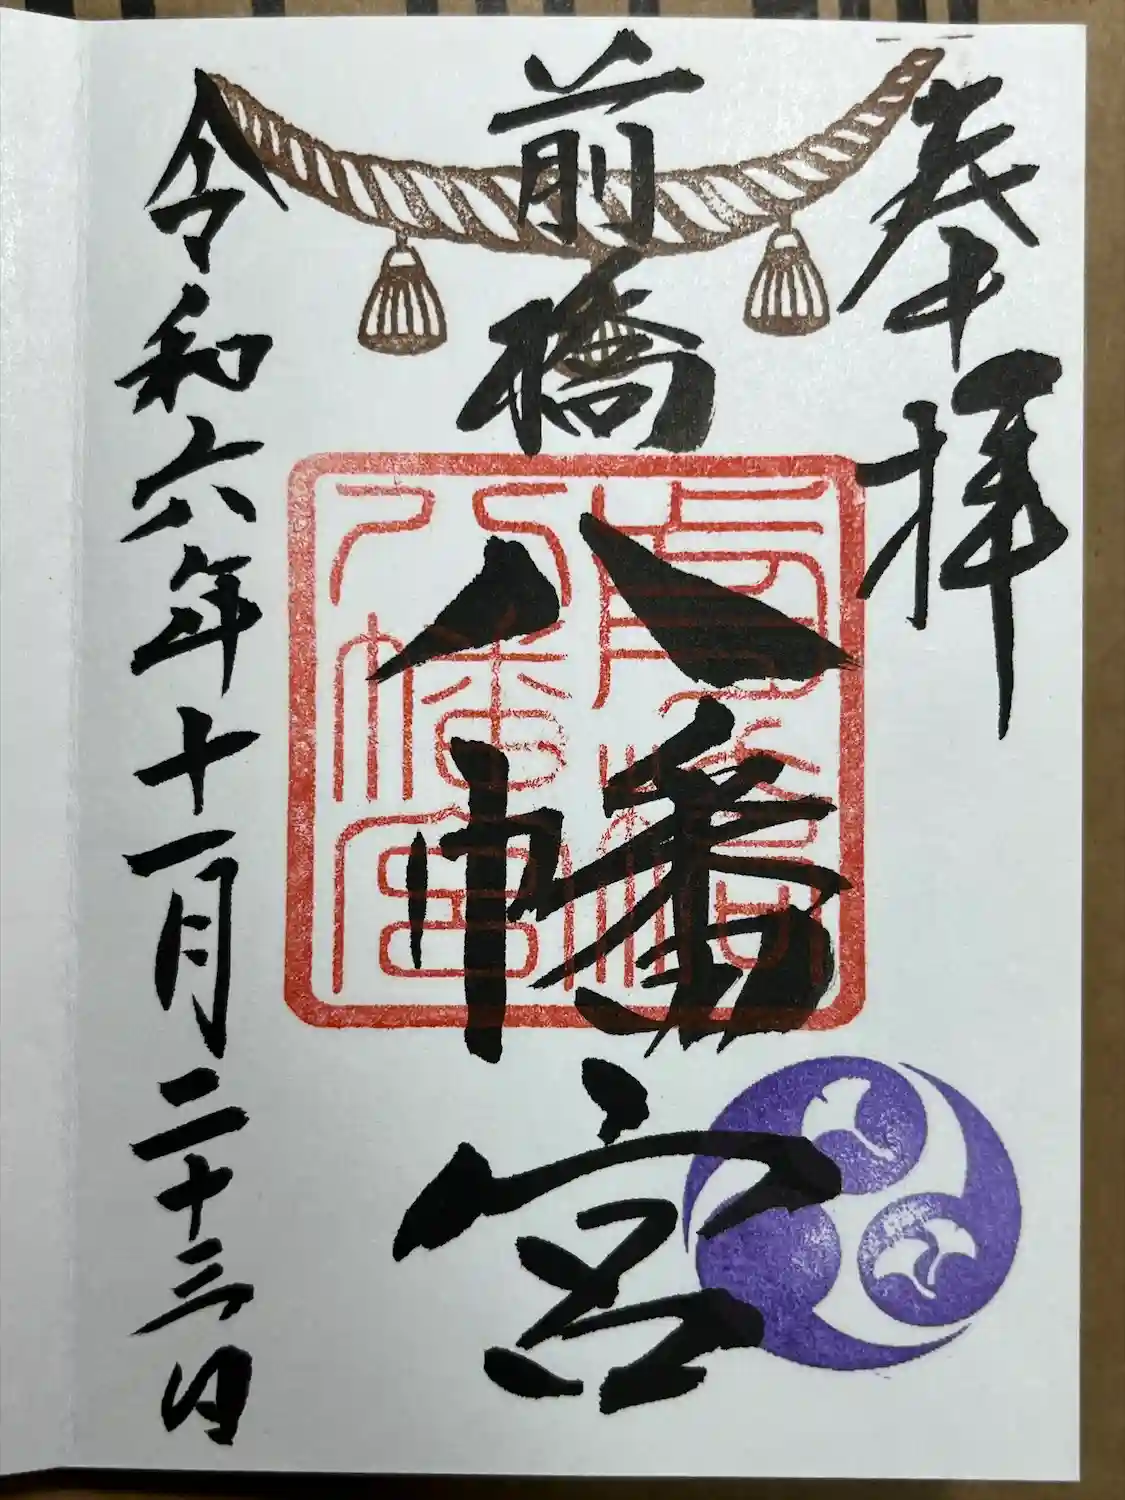 奉拝
前橋
八幡宮
令和六年十一月二十三日
前橋
八幡宮